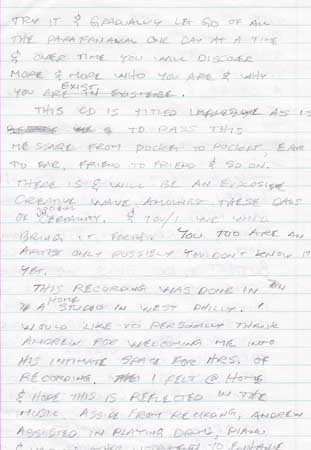 TRY IT & GRADUALLY LET GO OF ALL
THE PARAFANANAL ONE DAY AT A TIME
& OVER TIME YOU WILL DISCOVER
MORE & MORE WHO YOU ARE & WHY
YOU EXIST.
THIS CD IS TITLED AS IS
& TO PASS THIS
MESSAGE FROM POCKET TO POCKET, EAR
TO EAR, FRIEND TO FRIEND & SO ON.
THERE IS & WILL BE AN EXPLOSIVE
CREATIVE WAVE AMONGST THESE DAYS
OF & YOU/I WE WILL
BRING IT FORTH. YOU TOO ARE AN
ARTIST ONLY POSSIBLY YOU DON'T KNOW IT
YET.
THIS RECORDING WAS DONE IN
A HOME STUDIO IN WEST PHILLY. I
WOULD LIKE TO PERSONALLY THANK
ANDREW FOR WELCOMING ME INTO
HIS INTIMATE SPACE FOR HRS. OF
RECORDING. I FELT @ HOME
& HOPE THIS IS REFLECTED IN THE
MUSIC. ASIDE FROM RECORDING, ANDREW
ASSISTED IN PLAYING DRUMS, PIANO
TO ENHANCE